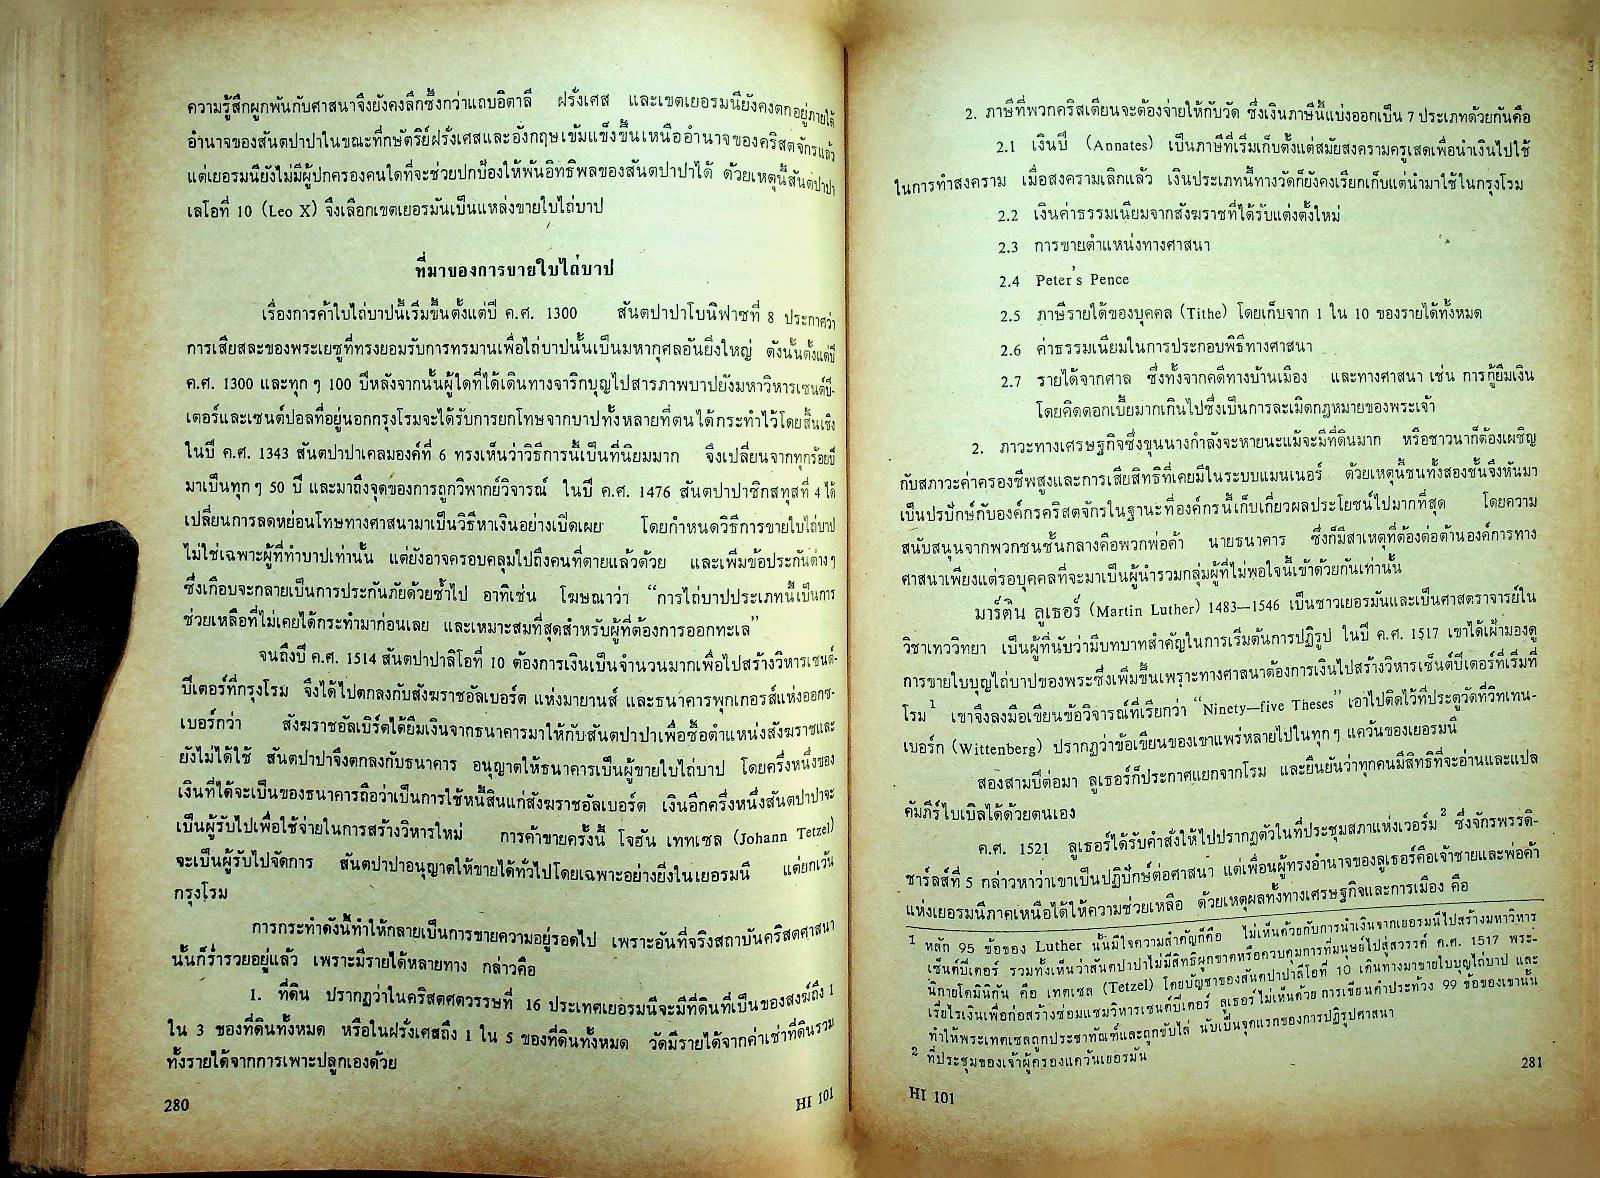 ความรู้สึกผูกพันกับศาสนาจึงยังคงลึกซึ้งกว่าแถบอิตาลี ฝรั่งเศส และเขตเยอรมนียังคงตกอยู่ภายใต้
อำนาจของสันตปาปาในขณะที่กษัตริย์ฝรั่งเศสและอังกฤษเข้มแข็งขึ้นเหนืออำนาจของคริสตจักรแล้ว
แต่เยอรมนียังไม่มีผู้ปกครองคนใดที่จะช่วยปกป้องให้พ้นอิทธิพลของสันตปาปาได้ ด้วยเหตุนี้สันตปาปา
เลโอที่ 10 (Leo X) จึงเลือกเขตเยอรมันเป็นแหล่งขายใบไถ่บาป
ที่มาของการขายใบไถ่บาป
เรื่องการค้าใบไถ่บาปนี้เริ่มขึ้นตั้งแต่ปี ค.ศ. 1300 สันตปาปาโบนิฟาซที่ 8 ประกาศว่า
การเสียสละของพระเยซูที่ทรงยอมรับการทรมานเพื่อไถ่บาปนั้นเป็นมหากุศลอันยิ่งใหญ่ ดังนั้นตั้งแต่ปี
ค.ศ. 1300 และทุก ๆ 100 ปีหลังจากนั้นผู้ใดที่ได้เดินทางจาริกบุญไปสารภาพบาปยังมหาวิหารเซนต์ปี-
เตอร์และเซนต์ปอลที่อยู่นอกกรุงโรมจะได้รับการยกโทษจากบาปทั้งหลายที่ตนได้กระทำไว้โดยสิ้นเชิง
ในปี ค.ศ. 1343 สันตปาปาเคลมองค์ที่ 6 ทรงเห็นว่าวิธีการนี้เป็นที่นิยมมาก จึงเปลี่ยนจากทุกร้อยปี
มาเป็นทุก ๆ 50 ปี และมาถึงจุดของการถูกวิพากย์วิจารณ์ ในปี ค.ศ. 1476 สันตปาปาซิกสทุสที่ 4 ได้
เปลี่ยนการลดหย่อนโทษทางศาสนามาเป็นวิธีหาเงินอย่างเปิดเผย โดยกำหนดวิธีการขายใบไถ่บาป
ไม่ใช่เฉพาะผู้ที่ทำบาปเท่านั้น แต่ยังอาจครอบคลุมไปถึงคนที่ตายแล้วด้วย และเพิ่มข้อประกันต่าง ๆ
ซึ่งเกือบจะกลายเป็นการประกันภัยด้วยซ้ำไป อาทิเช่น โฆษณาว่า “การไถ่บาปประเภทนี้เป็นการ
ช่วยเหลือที่ไม่เคยได้กระทำมาก่อนเลย และเหมาะสมที่สุดสำหรับผู้ที่ต้องการออกทะเล”
จนถึงปี ค.ศ. 1514 สันตปาปาลิโอที่ 10 ต้องการเงินเป็นจำนวนมากเพื่อไปสร้างวิหารเซนต์-
ปีเตอร์ที่กรุงโรม จึงได้ไปตกลงกับสังฆราชอัลเบอร์ต แห่งมายานส์ และธนาคารพุกเกอรส์แห่งออกซ-
เบอร์กว่า สังฆราชอัลเบิร์ตได้ยืมเงินจากธนาคารมาให้กับสันตปาปาเพื่อซื้อตำแหน่งสังฆราชและ
ยังไม่ได้ใช้ สันตปาปาจึงตกลงกับธนาคาร อนุญาตให้ธนาคารเป็นผู้ขายใบไถ่บาป โดยครึ่งหนึ่งของ
เงินที่ได้จะเป็นของธนาคารถือว่าเป็นการใช้หนี้สินแก่สังฆราชอัลเบอร์ต เงินอีกครึ่งหนึ่งสันตปาปาจะ
เป็นผู้รับไปเพื่อใช้จ่ายในการสร้างวิหารใหม่ การค้าขายครั้งนี้ โจฮัน เททเซล (Johann Tetzel)
จะเป็นผู้รับไปจัดการ สันตปาปาอนุญาตให้ขายได้ทั่วไปโดยเฉพาะอย่างยิ่งในเยอรมนี แต่ยกเว้น
กรุงโรม
การกระทำดังนี้ทำให้กลายเป็นการขายความอยู่รอดไป เพราะอันที่จริงสถาบันคริสตศาสนา
นั้นก็ร่ำรวยอยู่แล้ว เพราะมีรายได้หลายทาง กล่าวคือ
1. ที่ดิน ปรากฏว่าในคริสตศตวรรษที่ 16 ประเทศเยอรมนีจะมีที่ดินที่เป็นของสงฆ์ถึง 1
ใน 3 ของที่ดินทั้งหมด หรือในฝรั่งเศสถึง 1 ใน 5 ของที่ดินทั้งหมด วัดมีรายได้จากค่าเช่าที่ดินรวม
ทั้งรายได้จากการเพาะปลูกเองด้วย
280
HI 101
2. ภาษีที่พวกคริสเตียนจะต้องจ่ายให้กับวัด ซึ่งเงินภาษีนี้แบ่งออกเป็น 7 ประเภทด้วยกันคือ
2.1 เงินปี (Annates) เป็นภาษีที่เริ่มเก็บตั้งแต่สมัยสงครามครูเสดเพื่อนำเงินไปใช้
ในการทำสงคราม เมื่อสงครามเลิกแล้ว เงินประเภทนี้ทางวัดก็ยังคงเรียกเก็บแต่นำมาใช้ในกรุงโรม
2.2 เงินค่าธรรมเนียมจากสังฆราชที่ได้รับแต่งตั้งใหม่
2.3 การขายตำแหน่งทางศาสนา
2.4 Peter's Pence
2.5 ภาษีรายได้ของบุคคล (Tithe) โดยเก็บจาก 1 ใน 10 ของรายได้ทั้งหมด
2.6 ค่าธรรมเนียมในการประกอบพิธีทางศาสนา
2.7 รายได้จากศาล ซึ่งทั้งจากคดีทางบ้านเมือง และทางศาสนา เช่น การกู้ยืมเงิน
โดยคิดดอกเบี้ยมากเกินไปซึ่งเป็นการละเมิดกฎหมายของพระเจ้า
2. ภาวะทางเศรษฐกิจซึ่งขุนนางกำลังจะหายนะแม้จะมีที่ดินมาก หรือชาวนาก็ต้องเผชิญ
กับสภาวะค่าครองชีพสูงและการเสียสิทธิที่เคยมีในระบบแมนเนอร์ ด้วยเหตุนี้ชนทั้งสองชั้นจึงหันมา
เป็นปรปักษ์กับองค์กรคริสตจักรในฐานะที่องค์กรนี้เก็บเกี่ยวผลประโยชน์ไปมากที่สุด โดยความ
สนับสนุนจากพวกชนชั้นกลางคือพวกพ่อค้า นายธนาคาร ซึ่งก็มีสาเหตุที่ต้องต่อต้านองค์การทาง
ศาสนาเพียงแต่รอบุคคลที่จะมาเป็นผู้นำรวมกลุ่มผู้ที่ไม่พอใจนี้เข้าด้วยกันเท่านั้น
มาร์ติน ลูเธอร์ (Martin Luther) 1483—1546 เป็นชาวเยอรมันและเป็นศาสตราจารย์ใน
วิชาเทววิทยา เป็นผู้ที่นับว่ามีบทบาทสำคัญในการเริ่มต้นการปฏิรูป ในปี ค.ศ. 1517 เขาได้เฝ้ามองดู
การขายใบบุญไถ่บาปของพระซึ่งเพิ่มขึ้นเพราะทางศาสนาต้องการเงินไปสร้างวิหารเซ็นต์ปีเตอร์ที่เริ่มที่
โรม1 เขาจึงลงมือเขียนข้อวิจารณ์ที่เรียกว่า “Ninety—five Theses” เอาไปติดไว้ที่ประตูวัดที่วิทเทน-
เบอร์ก (Wittenberg) ปรากฏว่าข้อเขียนของเขาแพร่หลายไปในทุก ๆ แคว้นของเยอรมนี
สองสามปีต่อมา ลูเธอร์ก็ประกาศแยกจากโรม และยืนยันว่าทุกคนมีสิทธิที่จะอ่านและแปล
คัมภีร์ไบเบิลได้ด้วยตนเอง
ค.ศ. 1521 ลูเธอร์ได้รับคำสั่งให้ไปปรากฏตัวในที่ประชุมสภาแห่งเวอร์ม2 ซึ่งจักรพรรดิ-
ชาร์ลส์ที่ 5 กล่าวหาว่าเขาเป็นปฏิปักษ์ต่อศาสนา แต่เพื่อนผู้ทรงอำนาจของลูเธอร์คือเจ้าชายและพ่อค้า
แห่งเยอรมนีภาคเหนือได้ให้ความช่วยเหลือ ด้วยเหตุผลทั้งทางเศรษฐกิจและการเมือง คือ
1 หลัก 95 ข้อของ Luther นั้นมีใจความสำคัญก็คือ ไม่เห็นด้วยกับการนำเงินจากเยอรมนีไปสร้างมหาวิหาร
เซ็นต์ปีเตอร์ รวมทั้งเห็นว่าสันตปาปาไม่มีสิทธิผูกขาดหรือควบคุมการที่มนุษย์ไปสู่สวรรค์ ค.ศ. 1517 พระ-
นิกายโดมินิกัน คือ เทตเซล (Tetzel) โดยบัญชาของสันตปาปาลีโอที่ 10 เดินทางมาขายใบบุญไถ่บาป และ
เรี่ยไรเงินเพื่อก่อสร้างซ่อมแซมวิหารเซนต์ปีเตอร์ ลูเธอร์ไม่เห็นด้วย การเขียนคำประท้วง 99 ข้อของเขานั้น
ทำให้พระเทตเซลถูกประชาทัณฑ์และถูกขับไล่ นับเป็นจุดแรกของการปฏิรูปศาสนา
2 ที่ประชุมของเจ้าผู้ครองแคว้นเยอรมัน
281
HI 101